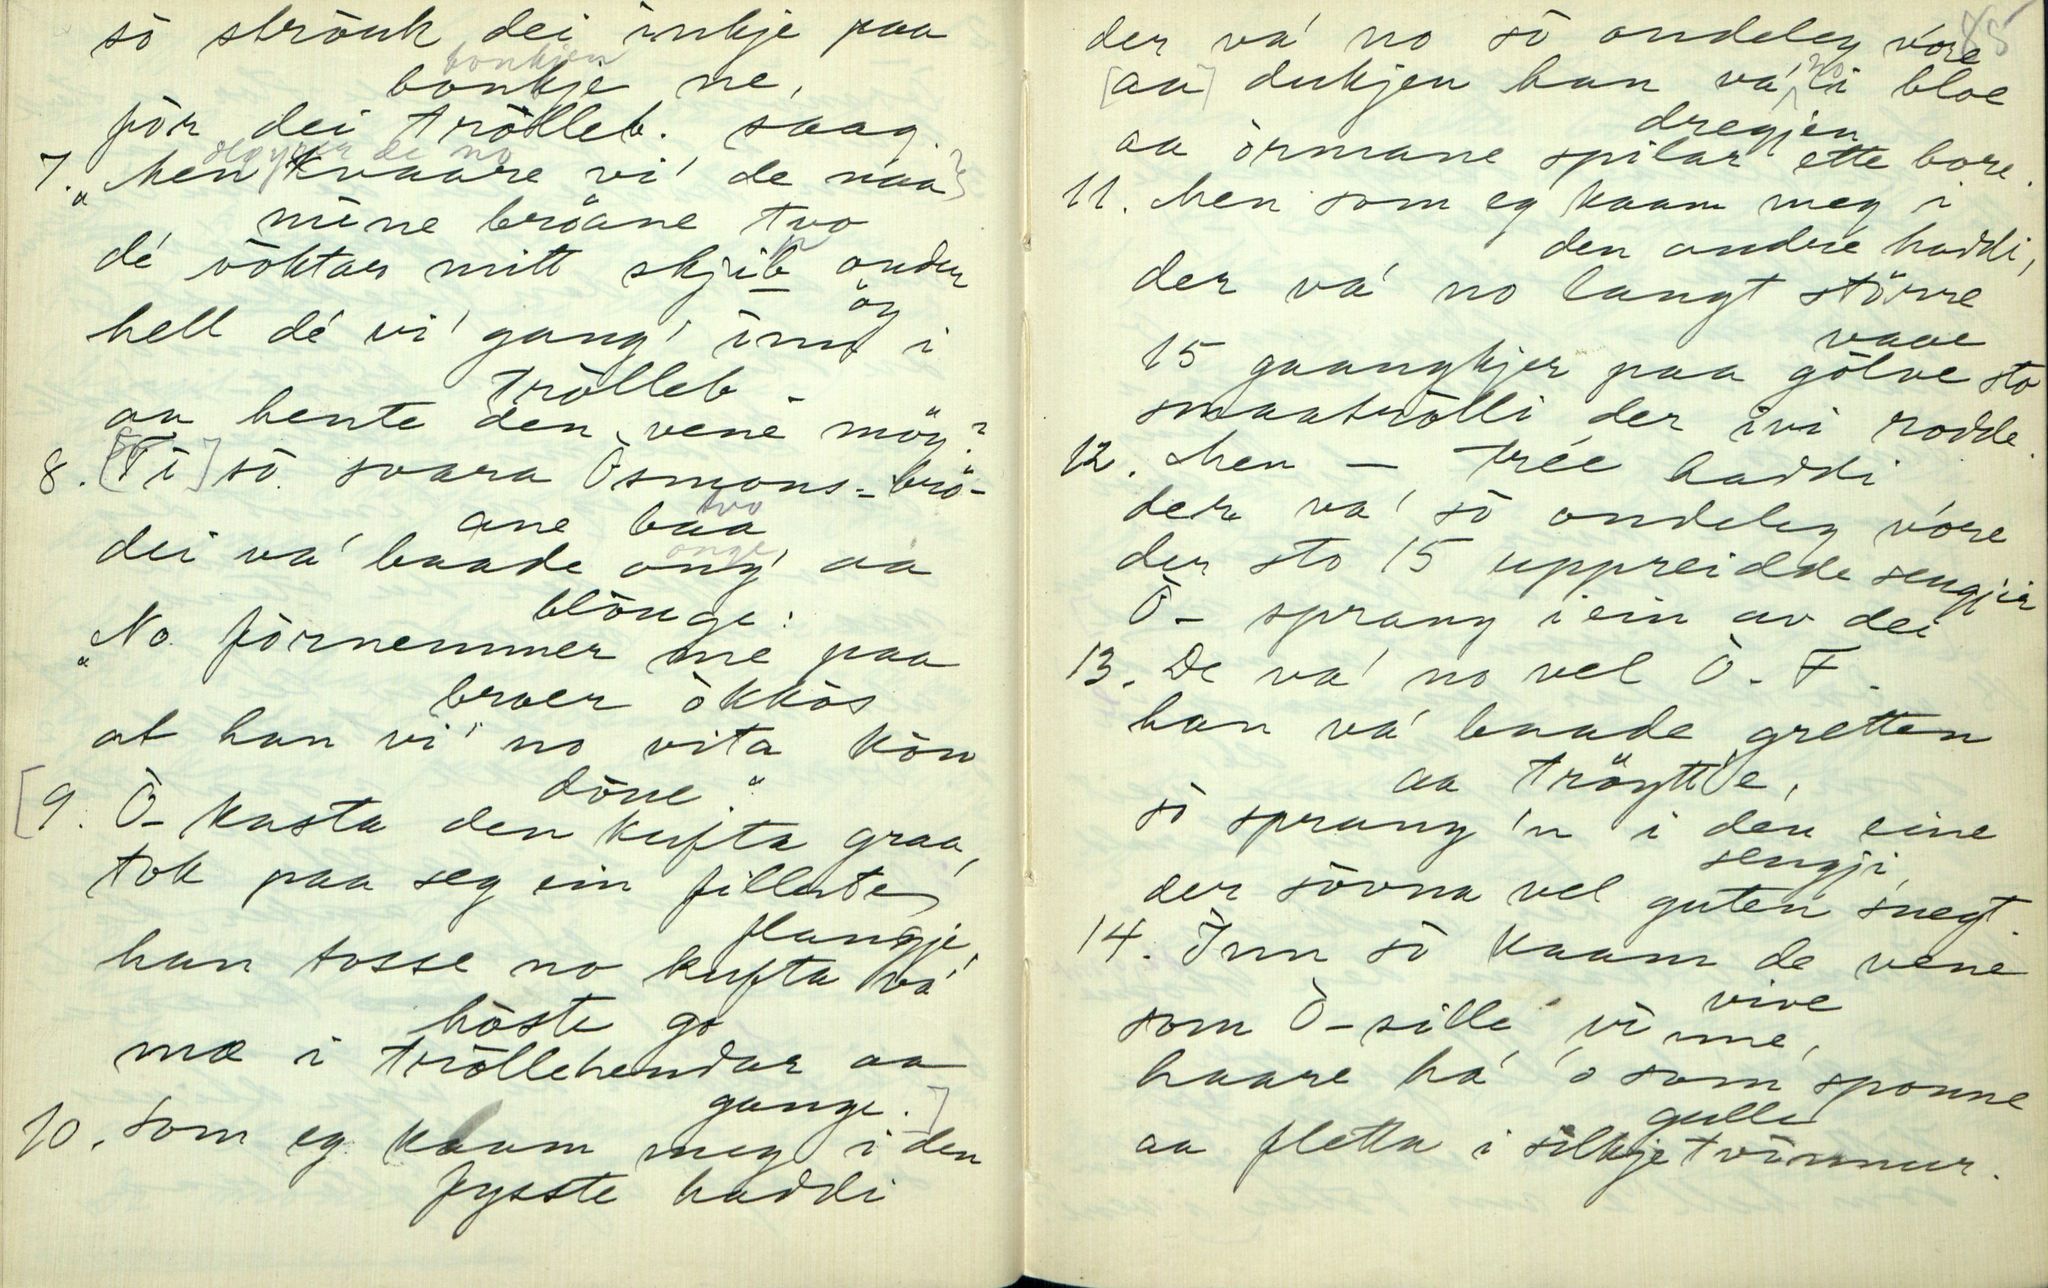 sò strauk dei inkje paa
bonkjen
bonkje ne,
fòr dei tròlleb. saag.
sløyper de no
7. "Men kvaare vi' de naa
mine bröane tvo
dé vòktar mitt skjib onder
öy
hell dé vi' gang' inn i
tròlleb_
aa hente den vene möy?
8. [Ti] sò svara Òsmons-brö-
tvo
ane baa
onge
dei va' baade ong' aa
blònge:
"No fòrnemmer me paa
broer òkkòs
at han vi' no vita kòn
dòne."
[9. Ò- kasta den kufta graa,
tok paa seg ein fillute
flangje,
han tosse no kufta va'
hòste go
mæ i tròllehendar aa
gange.]
10. Som eg kaam meg i den
fysste haddi
85
der va' no sò ondeleg vòre
no
[aa] dukjen han va' i bloe
dregjen
aa òrmane spilar ette bore.
11. Men som eg kaam meg i
den andre haddi,
der va' no langt större
vaae
15 gaangkjer paa gòlve sto
smaatròlli der ivi rodde.
12. Men — trée haddi
der va' sò ondeleg vòre
der sto 15 uppreidde sengjir
Ò- sprang i ein av dei
13. De va' no vel Ò. F.
han va' baade gretten
aa tröytt'e,
sò sprang 'n i den eine
sengji,
der sòvna vel guten snegt.
14. Inn sò kaam de vene
vive
som Ò- sille vinne,
haare ha' 'o som sponne
gulle
aa fletta i silkjetvinnur.